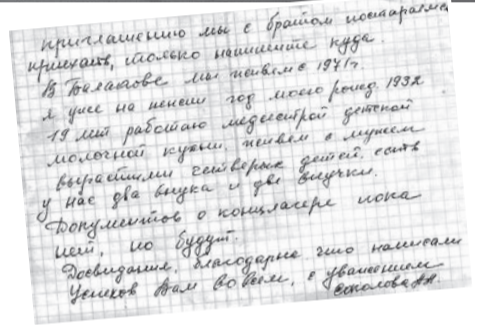 приглашению мы с братом постараемся
приехать, только напишите куда.
В Балашове мы живем с 1941г.
я уже на пенсии год моего рожд 1932
19 лет работаю медсестрой детской
молочной кухни. живем с мужем
вырастили четверых детей, есть
у нас два внука и две внучки.
Документов о концлагере пока
нет, но будут.
Досвидания, благодарна что написали
Успехов Вам во всем, с уважением
Соколова